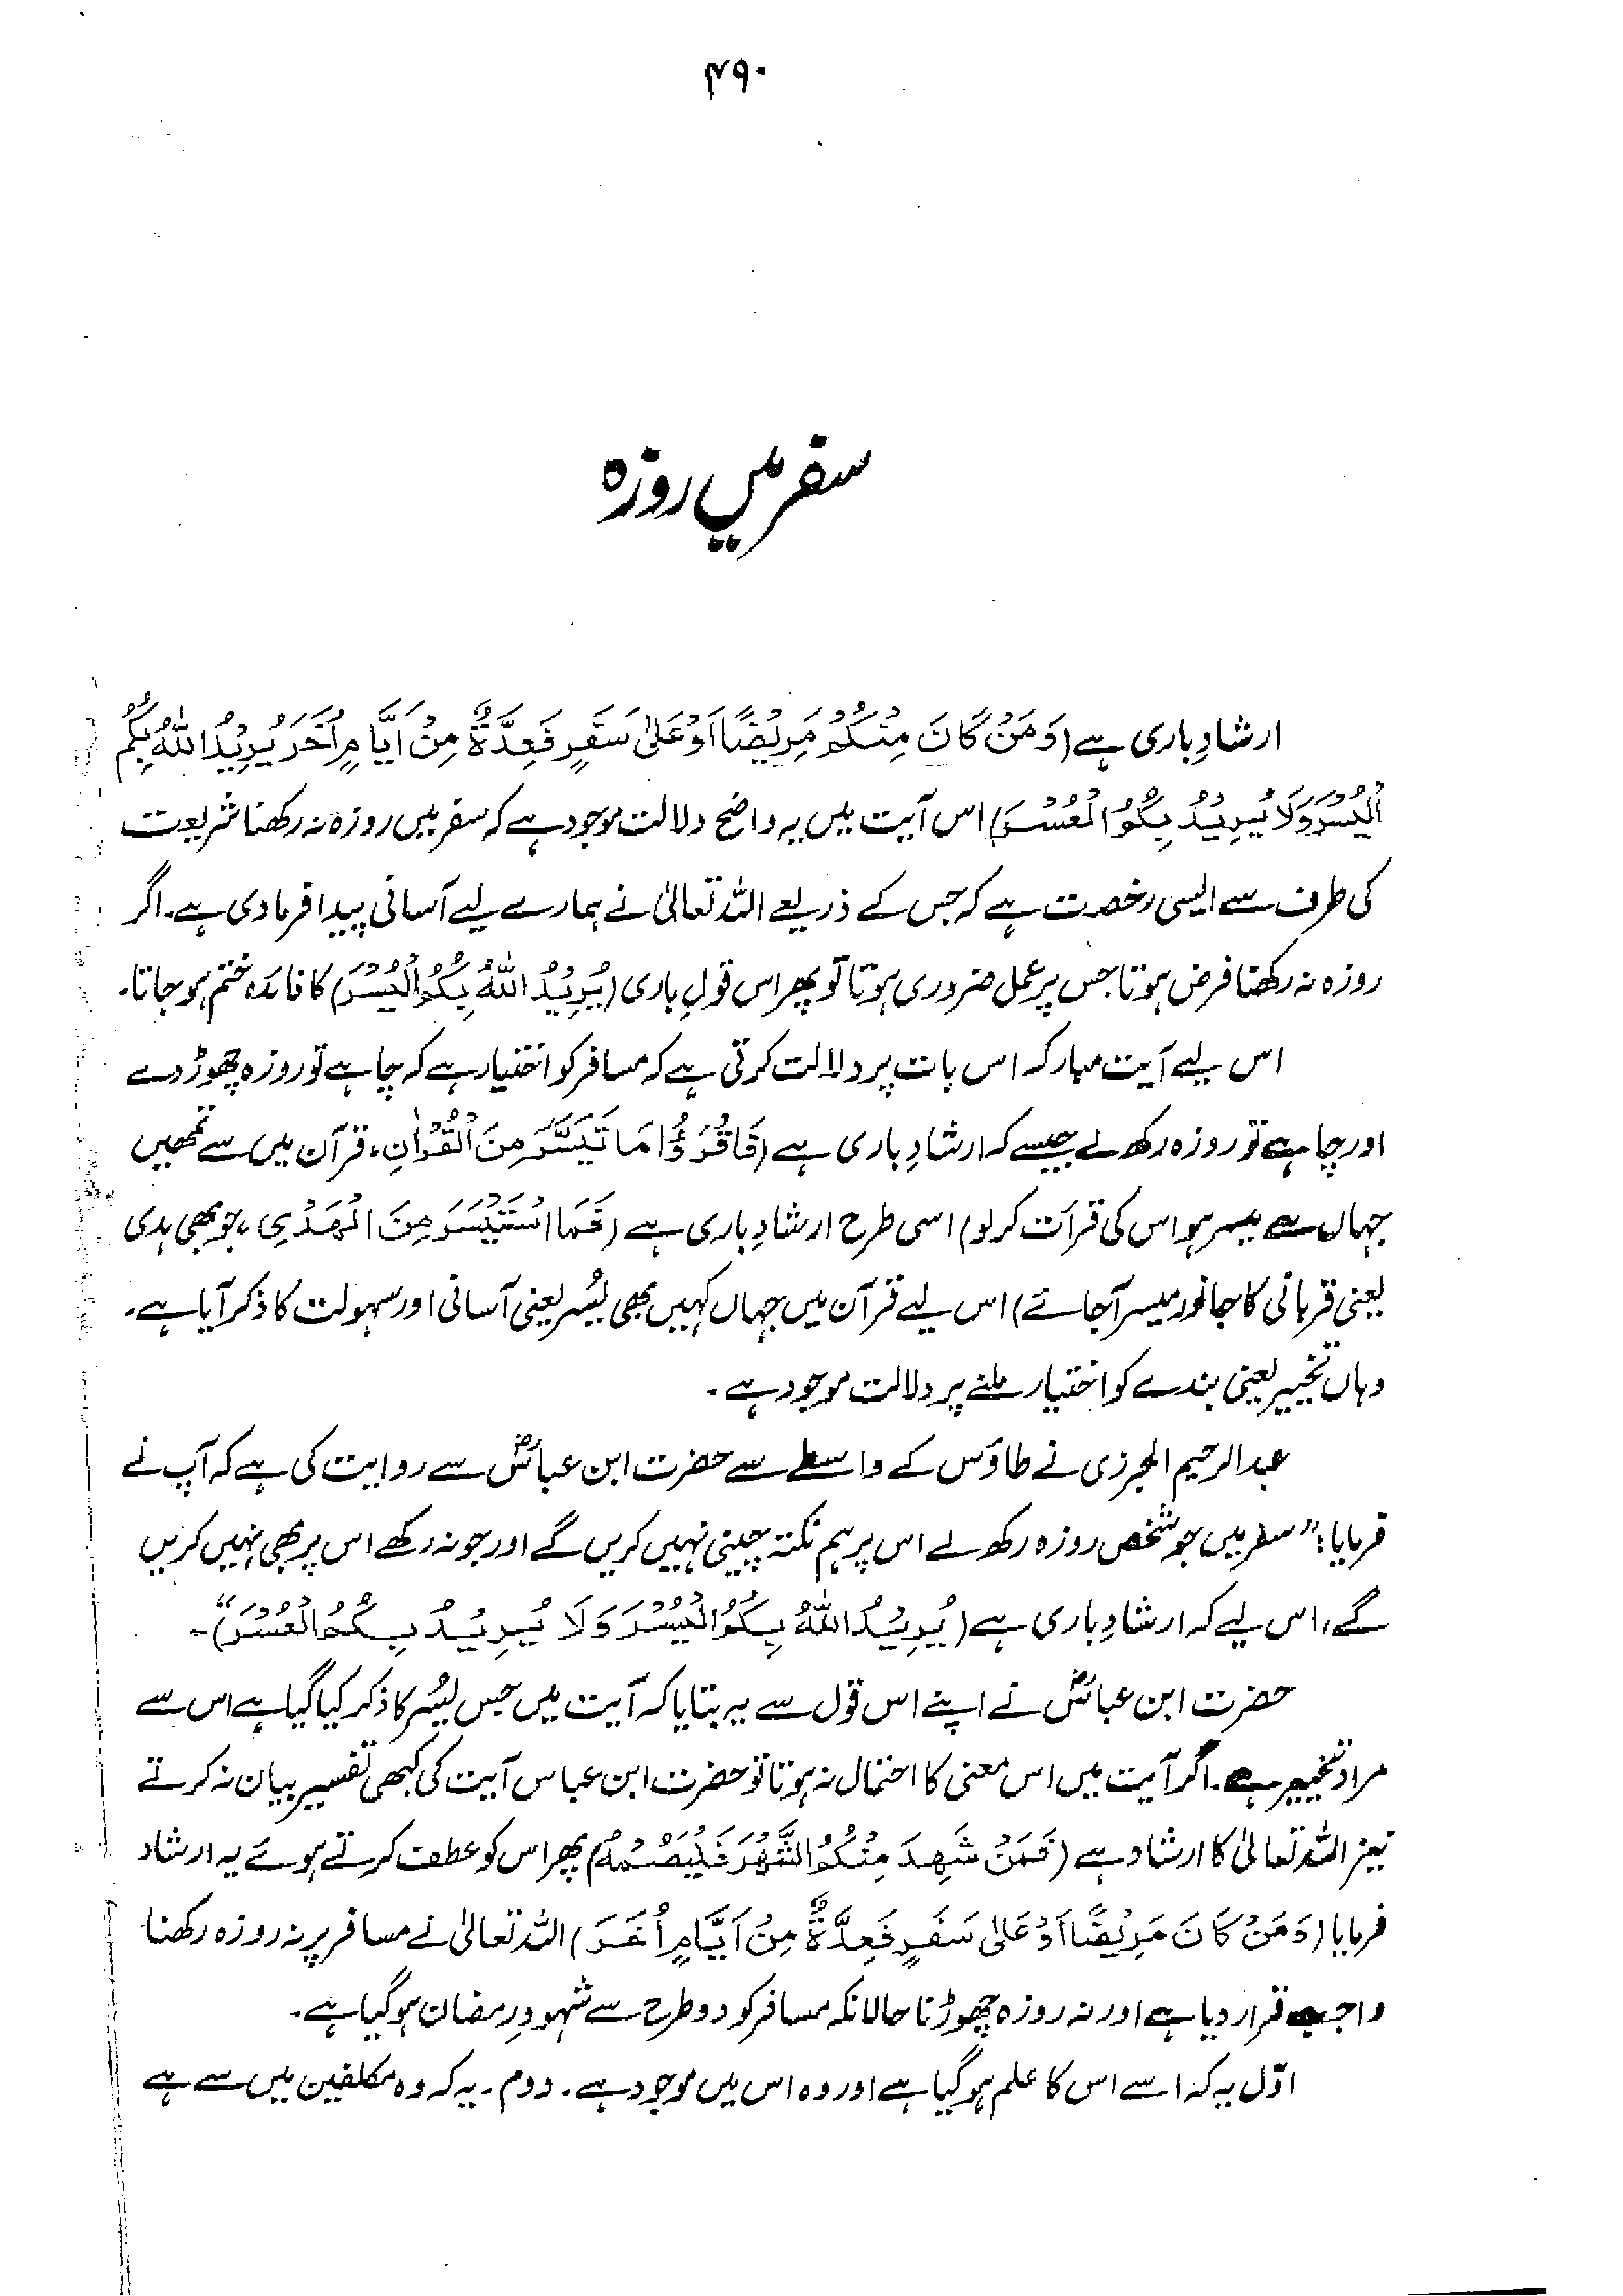 ۴۹۰
سفر میں روزہ
ارشادِ باری ہے (وَمَنْ كَانَ مِنْكُمْ مَرِيْضًا اَوْ عَلٰى سَفَرٍ فَعِدَّةٌ مِنْ اَيَّامٍ اُخَرَ يُرِيْدُ اللّٰهُ بِكُمُ
الْيُسْرَ وَلَا يُرِيْدُ بِكُمُ الْعُسْرَ) اس آیت میں یہ واضح دلالت موجود ہے کہ سفر میں روزہ نہ رکھنا شریعت
کی طرف سے ایسی رخصت ہے کہ جس کے ذریعے اللہ تعالیٰ نے ہمارے لیے آسانی پیدا فرمادی ہے۔ اگر
روزہ نہ رکھنا فرض ہوتا جس پر عمل ضروری ہوتا تو پھر اس قولِ باری (يُرِيْدُ اللّٰهُ بِكُمُ الْيُسْرَ) کا فائدہ ختم ہو جاتا۔
اس لیے آیت مبارکہ اس بات پر دلالت کرتی ہے کہ مسافر کو اختیار ہے کہ چاہے تو روزہ چھوڑ دے
اور چاہے تو روزہ رکھ لے جیسے کہ ارشادِ باری ہے (فَاقْرَءُوْا مَا تَيَسَّرَ مِنَ الْقُرْاٰنِ، قرآن میں سے تمھیں
جہاں سے میسر ہو اس کی قرآت کر لو) اسی طرح ارشادِ باری ہے (فَمَا اسْتَيْسَرَ مِنَ الْهَدْىِ، جو بھی ہدی
یعنی قربانی کا جانور میسر آجائے) اس لیے قرآن میں جہاں کہیں بھی یُسْر یعنی آسانی اور سہولت کا ذکر آیا ہے۔
وہاں تخییر یعنی بندے کو اختیار ملنے پر دلالت موجود ہے۔
عبدالرحیم الجزری نے طاؤس کے واسطے سے حضرت ابن عباسؓ سے روایت کی ہے کہ آپ نے
فرمایا: "سفر میں جو شخص روزہ رکھ لے اس پر ہم نکتہ چینی نہیں کریں گے اور جو نہ رکھے اس پر بھی نہیں کریں
گے، اس لیے کہ ارشادِ باری ہے (يُرِيْدُ اللّٰهُ بِكُمُ الْيُسْرَ وَلَا يُرِيْدُ بِكُمُ الْعُسْرَ)"۔
حضرت ابن عباسؓ نے اپنے اس قول سے یہ بتایا کہ آیت میں جس یُسْر کا ذکر کیا گیا ہے اس سے
مراد تخییر ہے۔ اگر آیت میں اس معنی کا احتمال نہ ہوتا تو حضرت ابن عباس آیت کی کبھی تفسیر بیان نہ کرتے
نیز اللہ تعالیٰ کا ارشاد ہے (فَمَنْ شَهِدَ مِنْكُمُ الشَّهْرَ فَلْيَصُمْهُ) پھر اس کو عطف کرتے ہوئے یہ ارشاد
فرمایا (وَمَنْ كَانَ مَرِيْضًا اَوْ عَلٰى سَفَرٍ فَعِدَّةٌ مِنْ اَيَّامٍ اُخَرَ) اللہ تعالیٰ نے مسافر پر نہ روزہ رکھنا
واجب قرار دیا ہے اور نہ روزہ چھوڑنا حالانکہ مسافر کو دو طرح سے شہودِ رمضان ہو گیا ہے۔
اوّل یہ کہ اسے اس کا علم ہو گیا ہے اور وہ اس میں موجود ہے۔ دوم۔ یہ کہ وہ مکلفین میں سے ہے